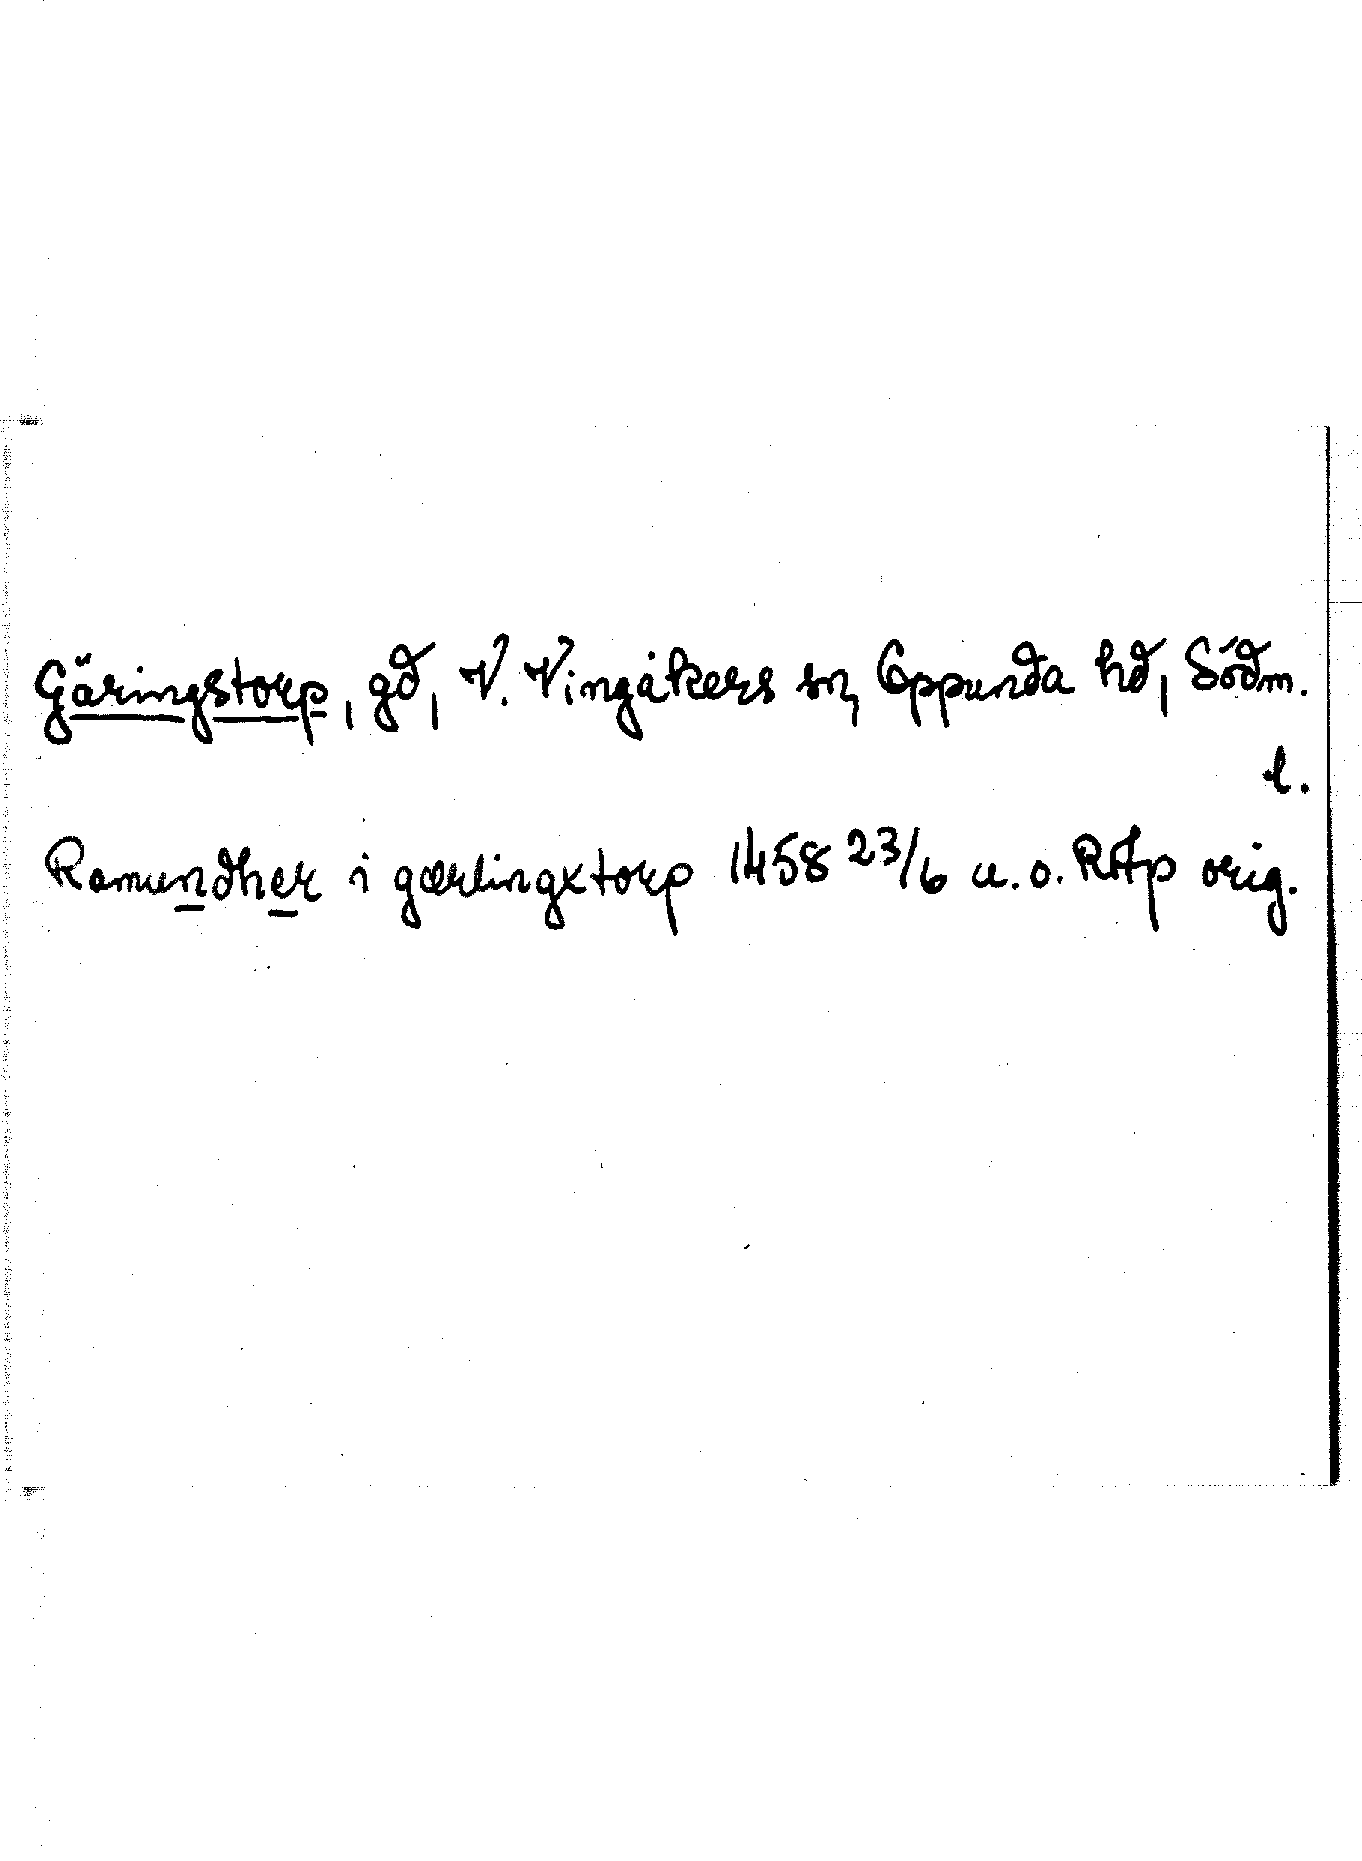 Gäringstorp, gd, V. Vingåkers sn, Oppunda hd, Södm.
l.
Ramundher i gærlingxtorp 1458 23/6 u.o. RAp orig.